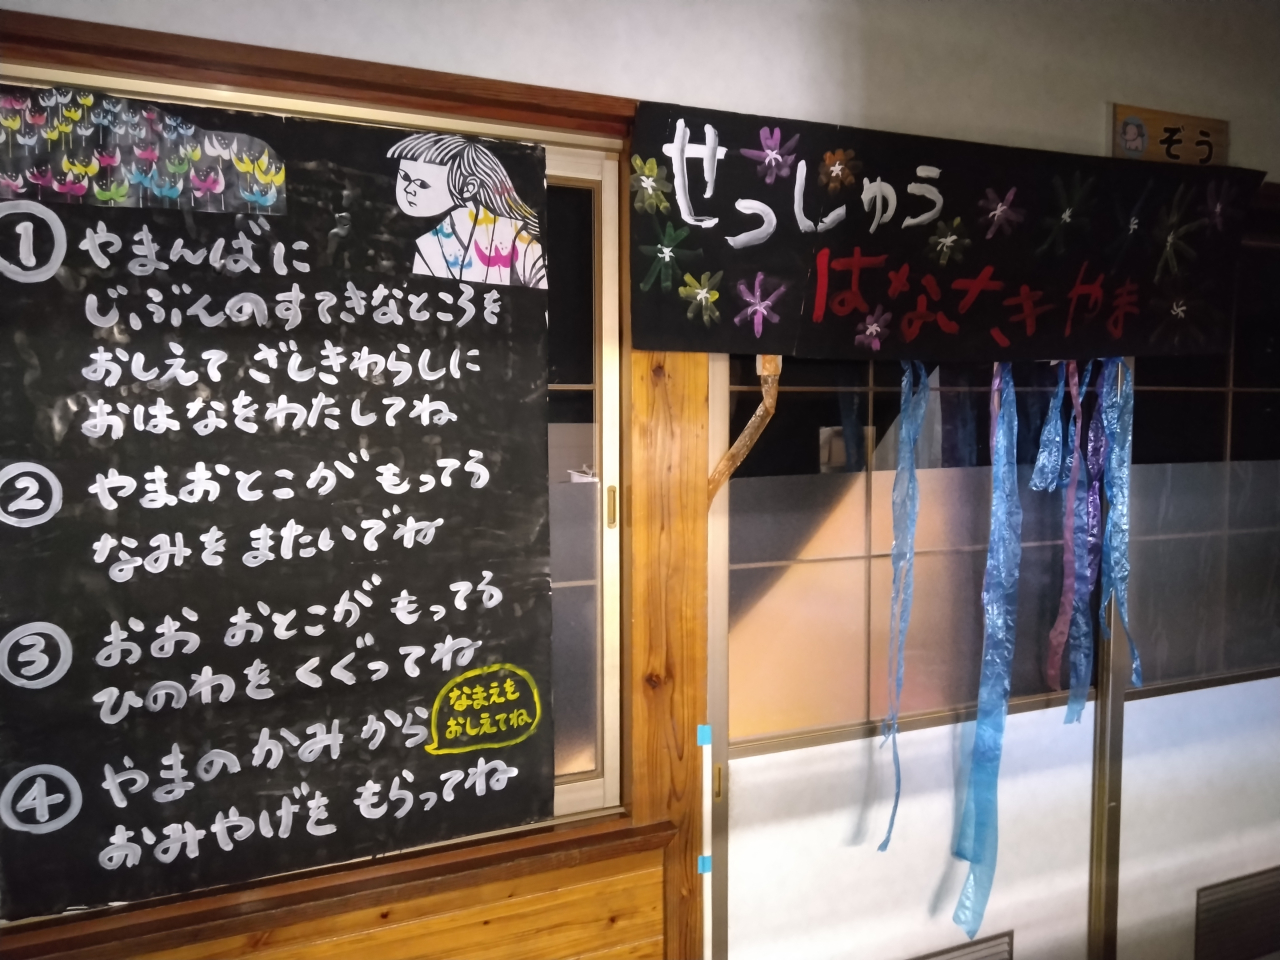 ① やまんばに
じぶんのすてきなところを
おしえて ざしきわらしに
おはなをわたしてね
② やまおとこが もってる
なみを またいでね
③ おお おとこが もってる
ひのわを くぐってね
④ やまのかみ から
おみやげを もらってね
なまえを
おしえてね
せっしゅう
はなさきやま
ぞう